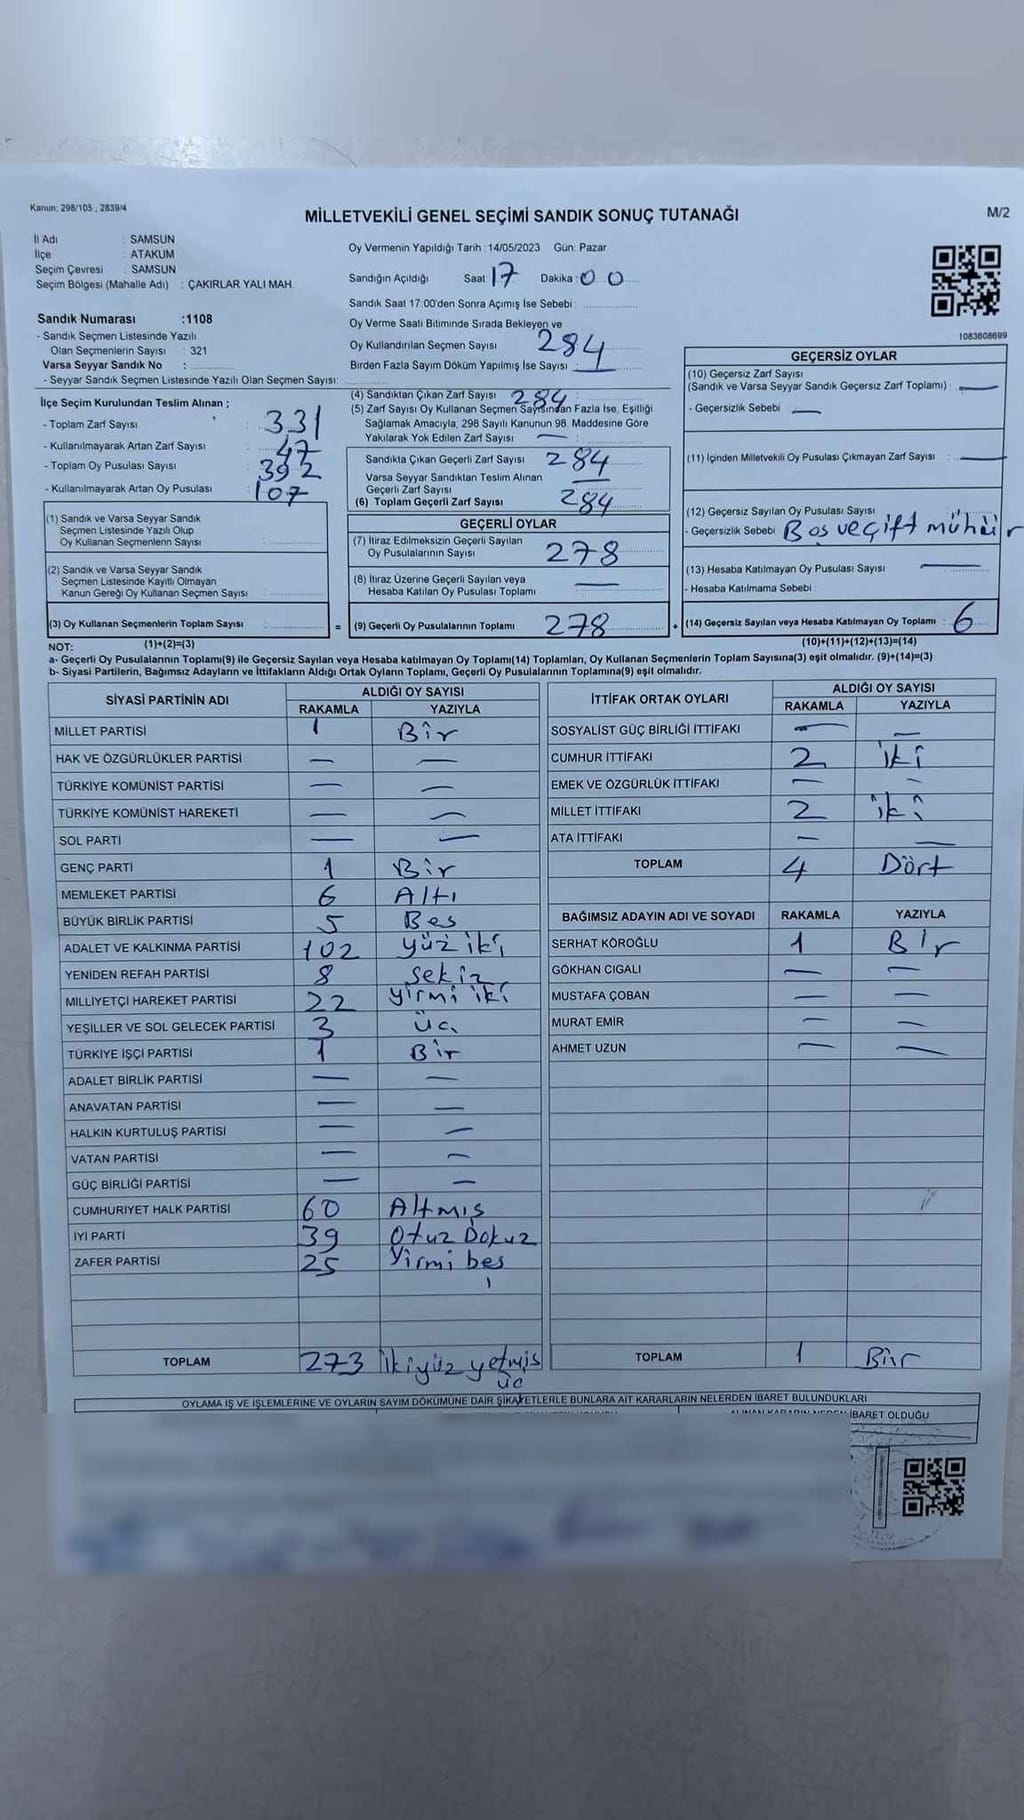 Kanun: 298/105 , 2839/4
MİLLETVEKİLİ GENEL SEÇİMİ SANDIK SONUÇ TUTANAĞI
M/2
İl Adı : SAMSUN
İlçe : ATAKUM
Seçim Çevresi : SAMSUN
Seçim Bölgesi (Mahalle Adı) : ÇAKIRLAR YALI MAH.
Oy Vermenin Yapıldığı Tarih : 14/05/2023 Gün: Pazar
Sandığın Açıldığı Saat: 17 Dakika: 00
Sandık Saat 17.00'den Sonra Açımış İse Sebebi :
Sandık Numarası :1108
- Sandık Seçmen Listesinde Yazılı
Olan Seçmenlerin Sayısı : 321
Varsa Seyyar Sandık No :
- Seyyar Sandık Seçmen Listesinde Yazılı Olan Seçmen Sayısı:
Oy Verme Saati Bitiminde Sırada Bekleyen ve
Oy Kullandırılan Seçmen Sayısı 284
Birden Fazla Sayım Döküm Yapılmış İse Sayısı : —
1083608699
İlçe Seçim Kurulundan Teslim Alınan ;
- Toplam Zarf Sayısı : 331
- Kullanılmayarak Artan Zarf Sayısı : 47
- Toplam Oy Pusulası Sayısı : 392
- Kullanılmayarak Artan Oy Pusulası : 107
(1) Sandık ve Varsa Seyyar Sandık
Seçmen Listesinde Yazılı Olup
Oy Kullanan Seçmenlerin Sayısı :
(2) Sandık ve Varsa Seyyar Sandık
Seçmen Listesinde Kayıtlı Olmayan
Kanun Gereği Oy Kullanan Seçmen Sayısı :
(3) Oy Kullanan Seçmenlerin Toplam Sayısı : =
(1)+(2)=(3)
(4) Sandıktan Çıkan Zarf Sayısı : 284
(5) Zarf Sayısı Oy Kullanan Seçmen Sayısından Fazla İse, Eşitliği
Sağlamak Amacıyla; 298 Sayılı Kanunun 98. Maddesine Göre
Yakılarak Yok Edilen Zarf Sayısı : —
Sandıkta Çıkan Geçerli Zarf Sayısı : 284
Varsa Seyyar Sandıktan Teslim Alınan
Geçerli Zarf Sayısı : —
(6) Toplam Geçerli Zarf Sayısı : 284
GEÇERLİ OYLAR
(7) İtiraz Edilmeksizin Geçerli Sayılan
Oy Pusulalarının Sayısı : 278
(8) İtiraz Üzerine Geçerli Sayılan veya
Hesaba Katılan Oy Pusulası Toplamı : —
(9) Geçerli Oy Pusulalarının Toplamı : 278 +
GEÇERSİZ OYLAR
(10) Geçersiz Zarf Sayısı
(Sandık ve Varsa Seyyar Sandık Geçersiz Zarf Toplamı) : —
- Geçersizlik Sebebi : —
(11) İçinden Milletvekili Oy Pusulası Çıkmayan Zarf Sayısı : —
(12) Geçersiz Sayılan Oy Pusulası Sayısı :
- Geçersizlik Sebebi : Boş ve çift mühür
(13) Hesaba Katılmayan Oy Pusulası Sayısı : —
- Hesaba Katılmama Sebebi :
(14) Geçersiz Sayılan veya Hesaba Katılmayan Oy Toplamı : 6
(10)+(11)+(12)+(13)=(14)
NOT:
a- Geçerli Oy Pusulalarının Toplamı(9) ile Geçersiz Sayılan veya Hesaba katılmayan Oy Toplamı(14) Toplamları, Oy Kullanan Seçmenlerin Toplam Sayısına(3) eşit olmalıdır. (9)+(14)=(3)
b- Siyasi Partilerin, Bağımsız Adayların ve İttifakların Aldığı Ortak Oyların Toplamı, Geçerli Oy Pusulalarının Toplamına(9) eşit olmalıdır.
SİYASİ PARTİNİN ADI ALDIĞI OY SAYISI
RAKAMLA YAZIYLA
MİLLET PARTİSİ 1 Bir
HAK VE ÖZGÜRLÜKLER PARTİSİ — —
TÜRKİYE KOMÜNİST PARTİSİ — —
TÜRKİYE KOMÜNİST HAREKETİ — —
SOL PARTİ — —
GENÇ PARTİ 1 Bir
MEMLEKET PARTİSİ 6 Altı
BÜYÜK BİRLİK PARTİSİ 5 Bes
ADALET VE KALKINMA PARTİSİ 102 yüz iki
YENİDEN REFAH PARTİSİ 8 sekiz
MİLLİYETÇİ HAREKET PARTİSİ 22 yirmi iki
YEŞİLLER VE SOL GELECEK PARTİSİ 3 üç
TÜRKİYE İŞÇİ PARTİSİ 1 Bir
ADALET BİRLİK PARTİSİ — —
ANAVATAN PARTİSİ — —
HALKIN KURTULUŞ PARTİSİ — —
VATAN PARTİSİ — —
GÜÇ BİRLİĞİ PARTİSİ — —
CUMHURİYET HALK PARTİSİ 60 Altmış
İYİ PARTİ 39 Otuz Dokuz
ZAFER PARTİSİ 25 Yirmi beş
TOPLAM 273 ikiyüz yetmiş
üç
İTTİFAK ORTAK OYLARI ALDIĞI OY SAYISI
RAKAMLA YAZIYLA
SOSYALİST GÜÇ BİRLİĞİ İTTİFAKI — —
CUMHUR İTTİFAKI 2 iki
EMEK VE ÖZGÜRLÜK İTTİFAKI — —
MİLLET İTTİFAKI 2 iki
ATA İTTİFAKI — —
TOPLAM 4 Dört
BAĞIMSIZ ADAYIN ADI VE SOYADI RAKAMLA YAZIYLA
SERHAT KÖROĞLU 1 Bir
GÖKHAN CIGALI — —
MUSTAFA ÇOBAN — —
MURAT EMİR — —
AHMET UZUN — —
TOPLAM 1 Bir
OYLAMA İŞ VE İŞLEMLERİNE VE OYLARIN SAYIM DÖKÜMÜNE DAİR ŞİKAYETLERLE BUNLARA AİT KARARLARIN NELERDEN İBARET BULUNDUKLARI
İBARET OLDUĞU